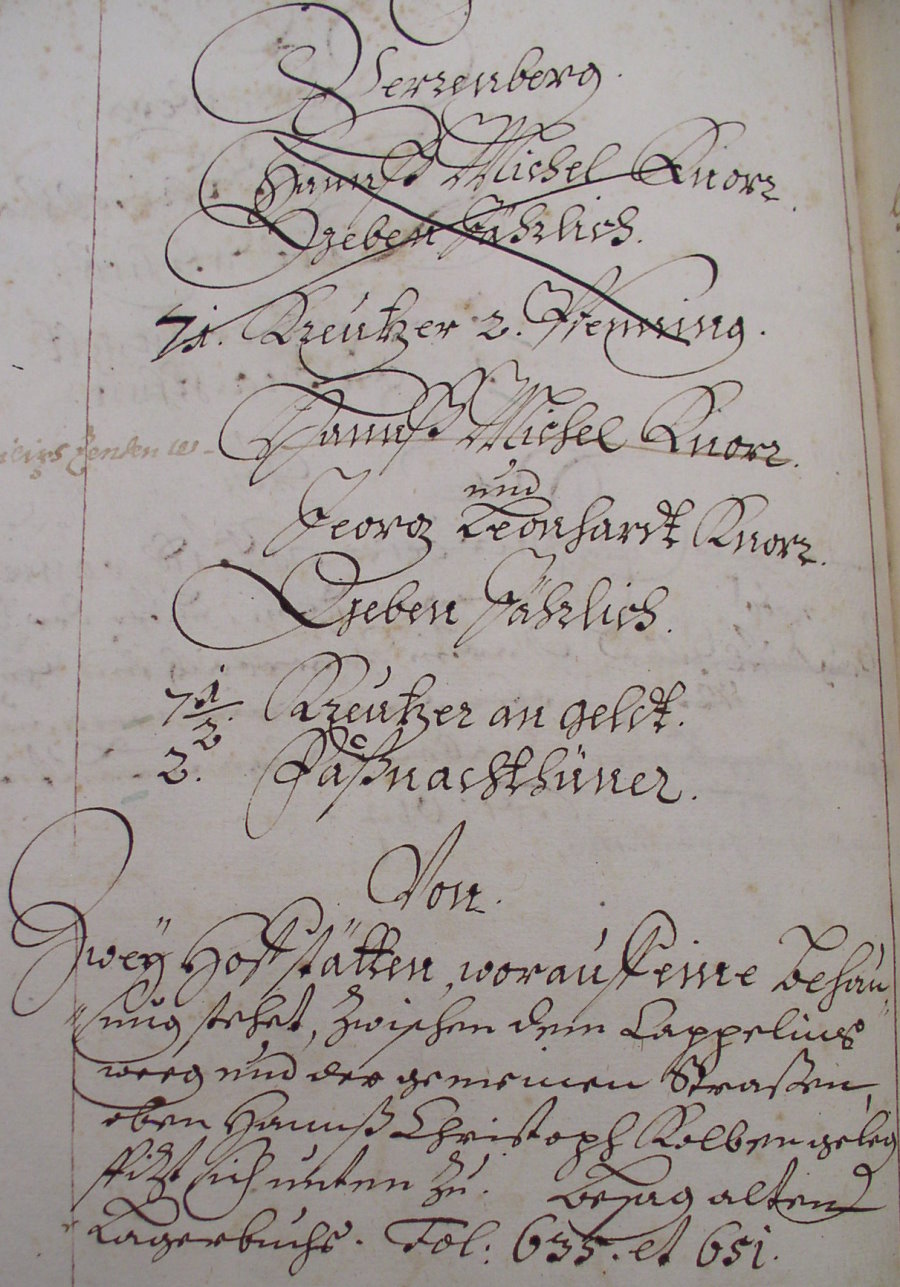 Herrenberg.
Hannß Michel Knorr.
Geben Jährlich.
71. Kreützer 2. Pfenning.
Hannß Michel Knorr.
und
Jeorg Leonhardt Knorr.
Geben Jährlich.
7 1/2 Kreützer an geldt.
2. Faßnachthüner.
Von.
Zweÿ Hofstätten, worauff eine Behau„
„sung stehet, zwischen dem Cappelins
weeg und der gemeinen Straßen,
oben Hannß Christoph Kolben geleg
spizt sich unten zu. Besag alten
Lagerbuchs. Fol: 635. et 651.